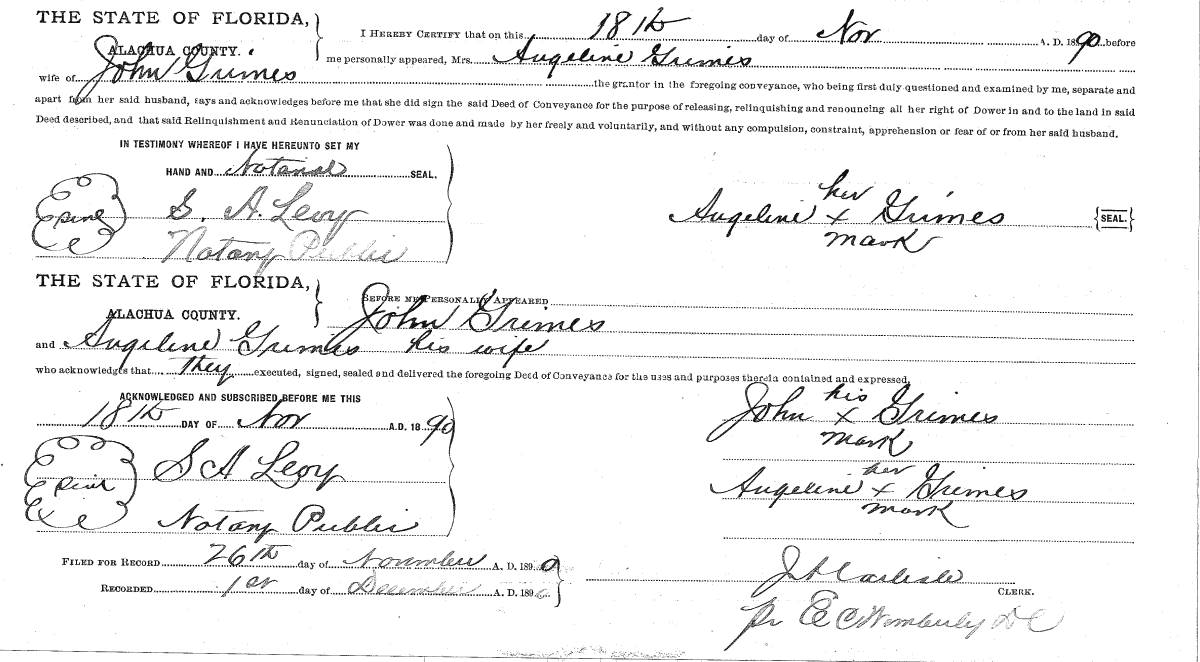 THE STATE OF FLORIDA,
ALACHUA COUNTY.
I HEREBY CERTIFY that on this 18th day of Nov A. D. 1890 before
me personally appeared, Mrs. Angeline Grimes
wife of John Grimes the grantor in the foregoing conveyance, who being first duly questioned and examined by me, separate and
apart from her said husband, says and acknowledges before me that she did sign the said Deed of Conveyance for the purpose of releasing, relinquishing and renouncing all her right of Dower in and to the land in said
Deed described, and that said Relinquishment and Renunciation of Dower was done and made by her freely and voluntarily, and without any compulsion, constraint, apprehension or fear of or from her said husband.
IN TESTIMONY WHEREOF I HAVE HEREUNTO SET MY
HAND AND Notarial SEAL.
S. A. Levy
Notary Public
her
Angeline x Grimes {SEAL.}
mark
THE STATE OF FLORIDA,
ALACHUA COUNTY.
BEFORE ME PERSONALLY APPEARED
John Grimes
and Angeline Grimes his wife
who acknowledges that they executed, signed, sealed and delivered the foregoing Deed of Conveyance for the uses and purposes therein contained and expressed,
ACKNOWLEDGED AND SUBSCRIBED BEFORE ME THIS
18th DAY OF Nov A.D. 1890
S A Levy
Notary Public
his
John x Grimes
mark
her
Angeline x Grimes
mark
FILED FOR RECORD 26th day of November A. D. 1890
RECORDED 1st day of December A. D. 1890
Carlisle
CLERK.
pr E C Wimberly DC